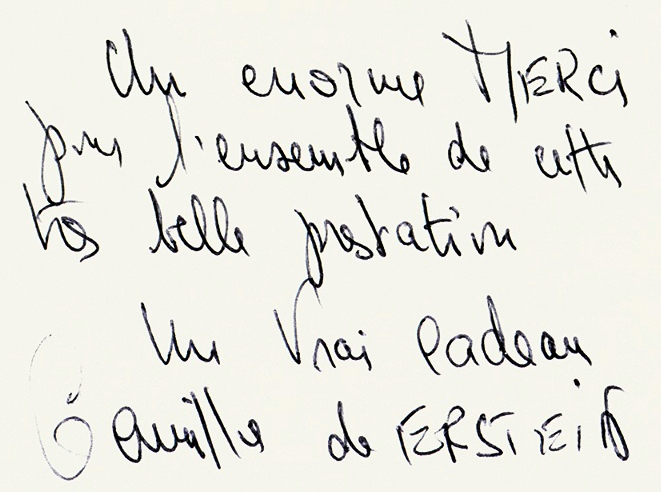 Un enorme MERCi
pour l'ensemble de cette
très belle prestation
Un Vrai Cadeau
Camille de ERSTEiN